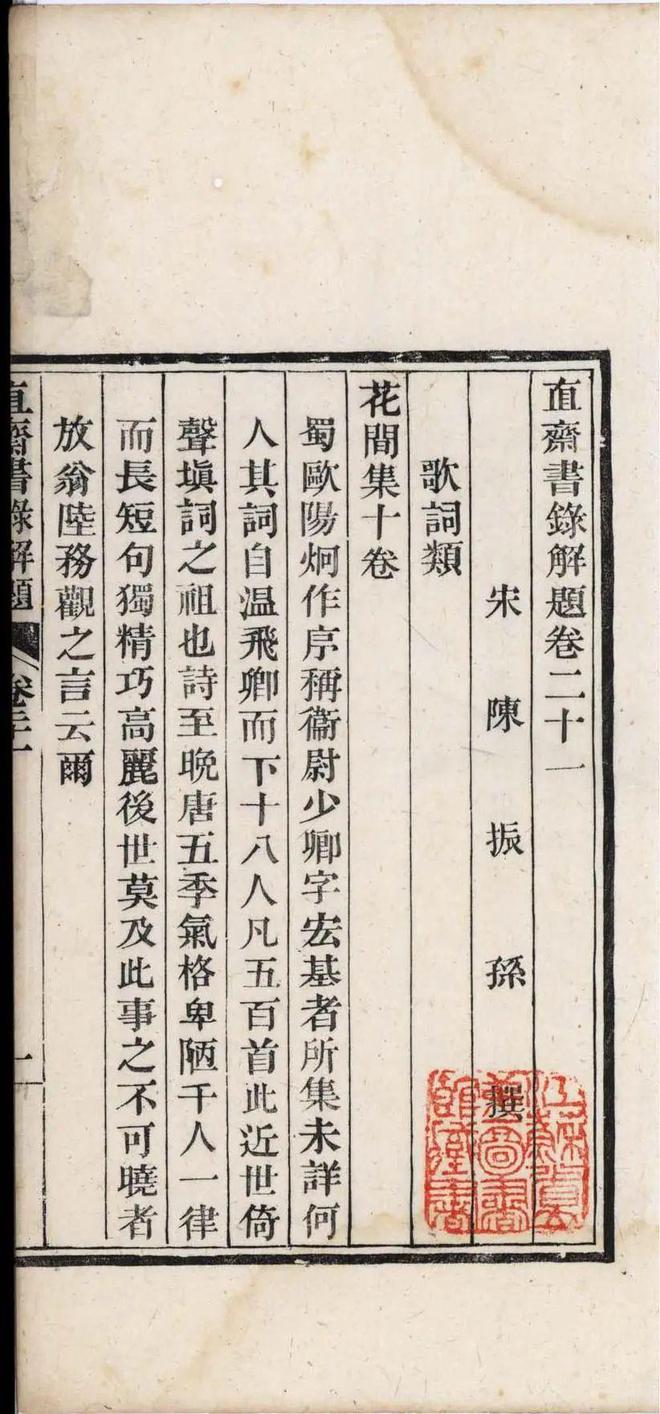 直齋書錄解題卷二十一
宋 陳 振 孫 撰
歌詞類
花間集十卷
蜀歐陽炯作序稱衞尉少卿字宏基者所集未詳何
人其詞自溫飛卿而下十八人凡五百首此近世倚
聲塡詞之祖也詩至晚唐五季氣格卑陋千人一律
而長短句獨精巧高麗後世莫及此事之不可曉者
放翁陸務觀之言云爾
直齋書錄解題 卷二十一 一
江蘇省立
圖書
館藏書